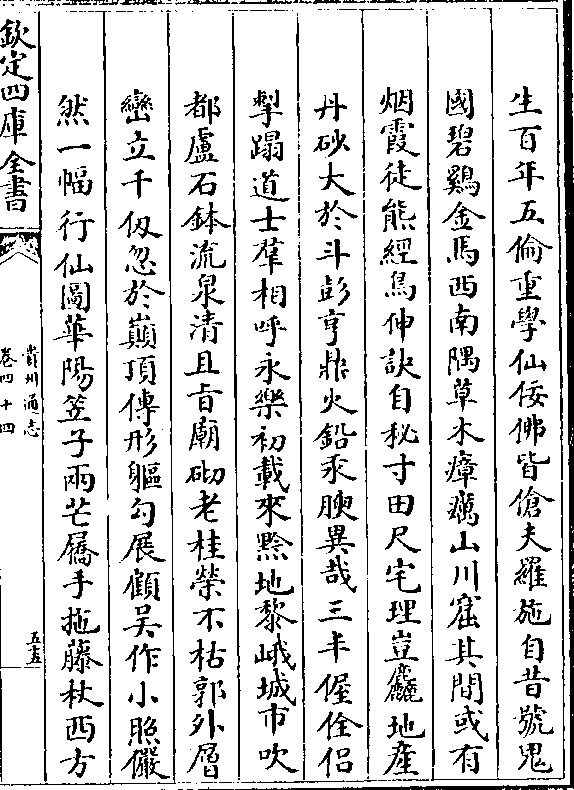 生百年五倫重學仙佞佛皆傖夫羅施自昔號鬼
國碧鷄金馬西南隅草木瘴癘山川窟其間或有
烟霞徒熊經鳥伸訣自秘寸田尺宅理豈麤地産
丹砂大於斗彭亨鼎火鉛汞腴異哉三丰偓佺侣
掣蹋道士羣相呼永樂初載來黔地黎峨城市吹
都盧石鉢流泉清且旨廟砌老桂榮不枯郭外層
巒立千仭忽於巔頂傳形軀勾展顧吴作小照儼
然一幅行仙圖華陽笠子兩芒屩手拖藤杖西方
欽定四庫全書
貴州通志
卷四十四
五五